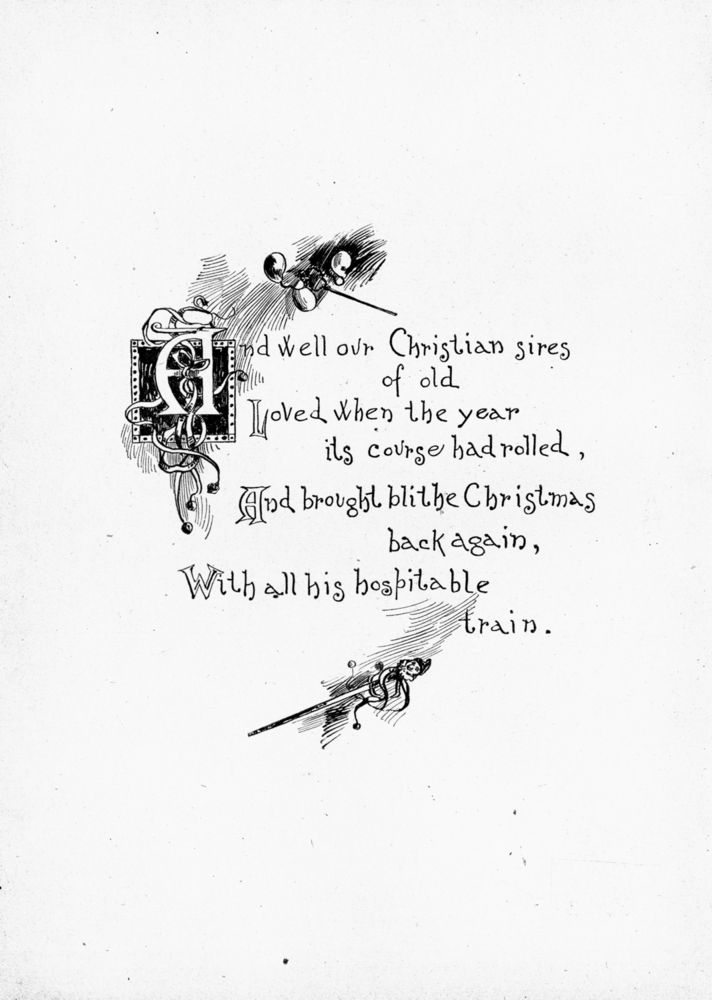 And well our Christian sires
of old
Loved when the year
its course had rolled,
And brought blithe Christmas
back again,
With all his hospitable
train.